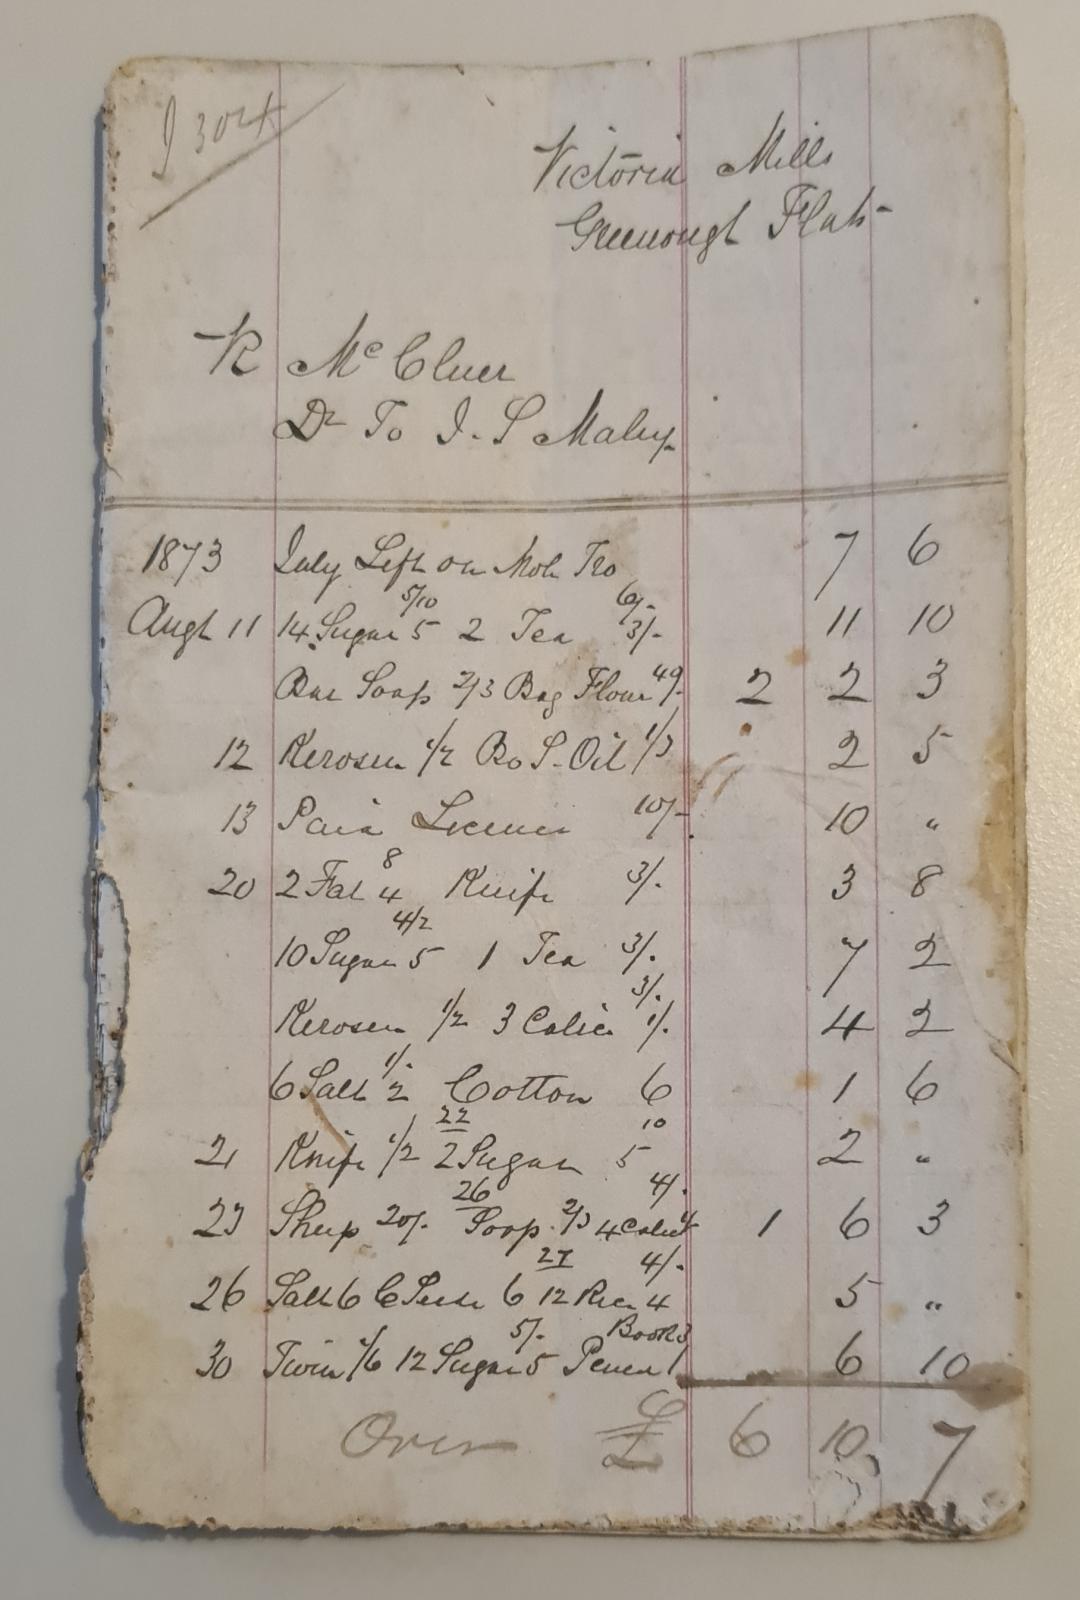 J 304
Victoria Mills
Greenough Flats
R McCluer
Dr To J. S Maley
1873 July Left on Moh Tro 7 6
5/10 6/-
Augt 11 14 Sugar 5 2 Tea 3/- 11 10
Bar Soap 2/3 Bag Flour 49/- 2 2 3
12 Kerosen 1/2 Bo S. Oil 1/3 2 5
13 Paid License 10/- 10 "
8
20 2 Fat 4 Knife 3/. 3 8
4/2
10 Sugar 5 1 Tea 3/. 7 2
3/.
Kerosen 1/2 3 Calico 1/. 4 2
1/.
6 Salt 2 Cotton 6 1 6
22 10
21 Knife 1/2 2 Sugar 5 2 "
26 4/.
23 Sheep 20/. Soap 2/3 4 Calico 1/ 1 6 3
27 4/.
26 Salt 6 C Seeds 6 12 Rice 4 5 "
5/. Book 3
30 Twin 1/6 12 Sugar 5 Pencil 1 6 10
Over £ 6 10 7